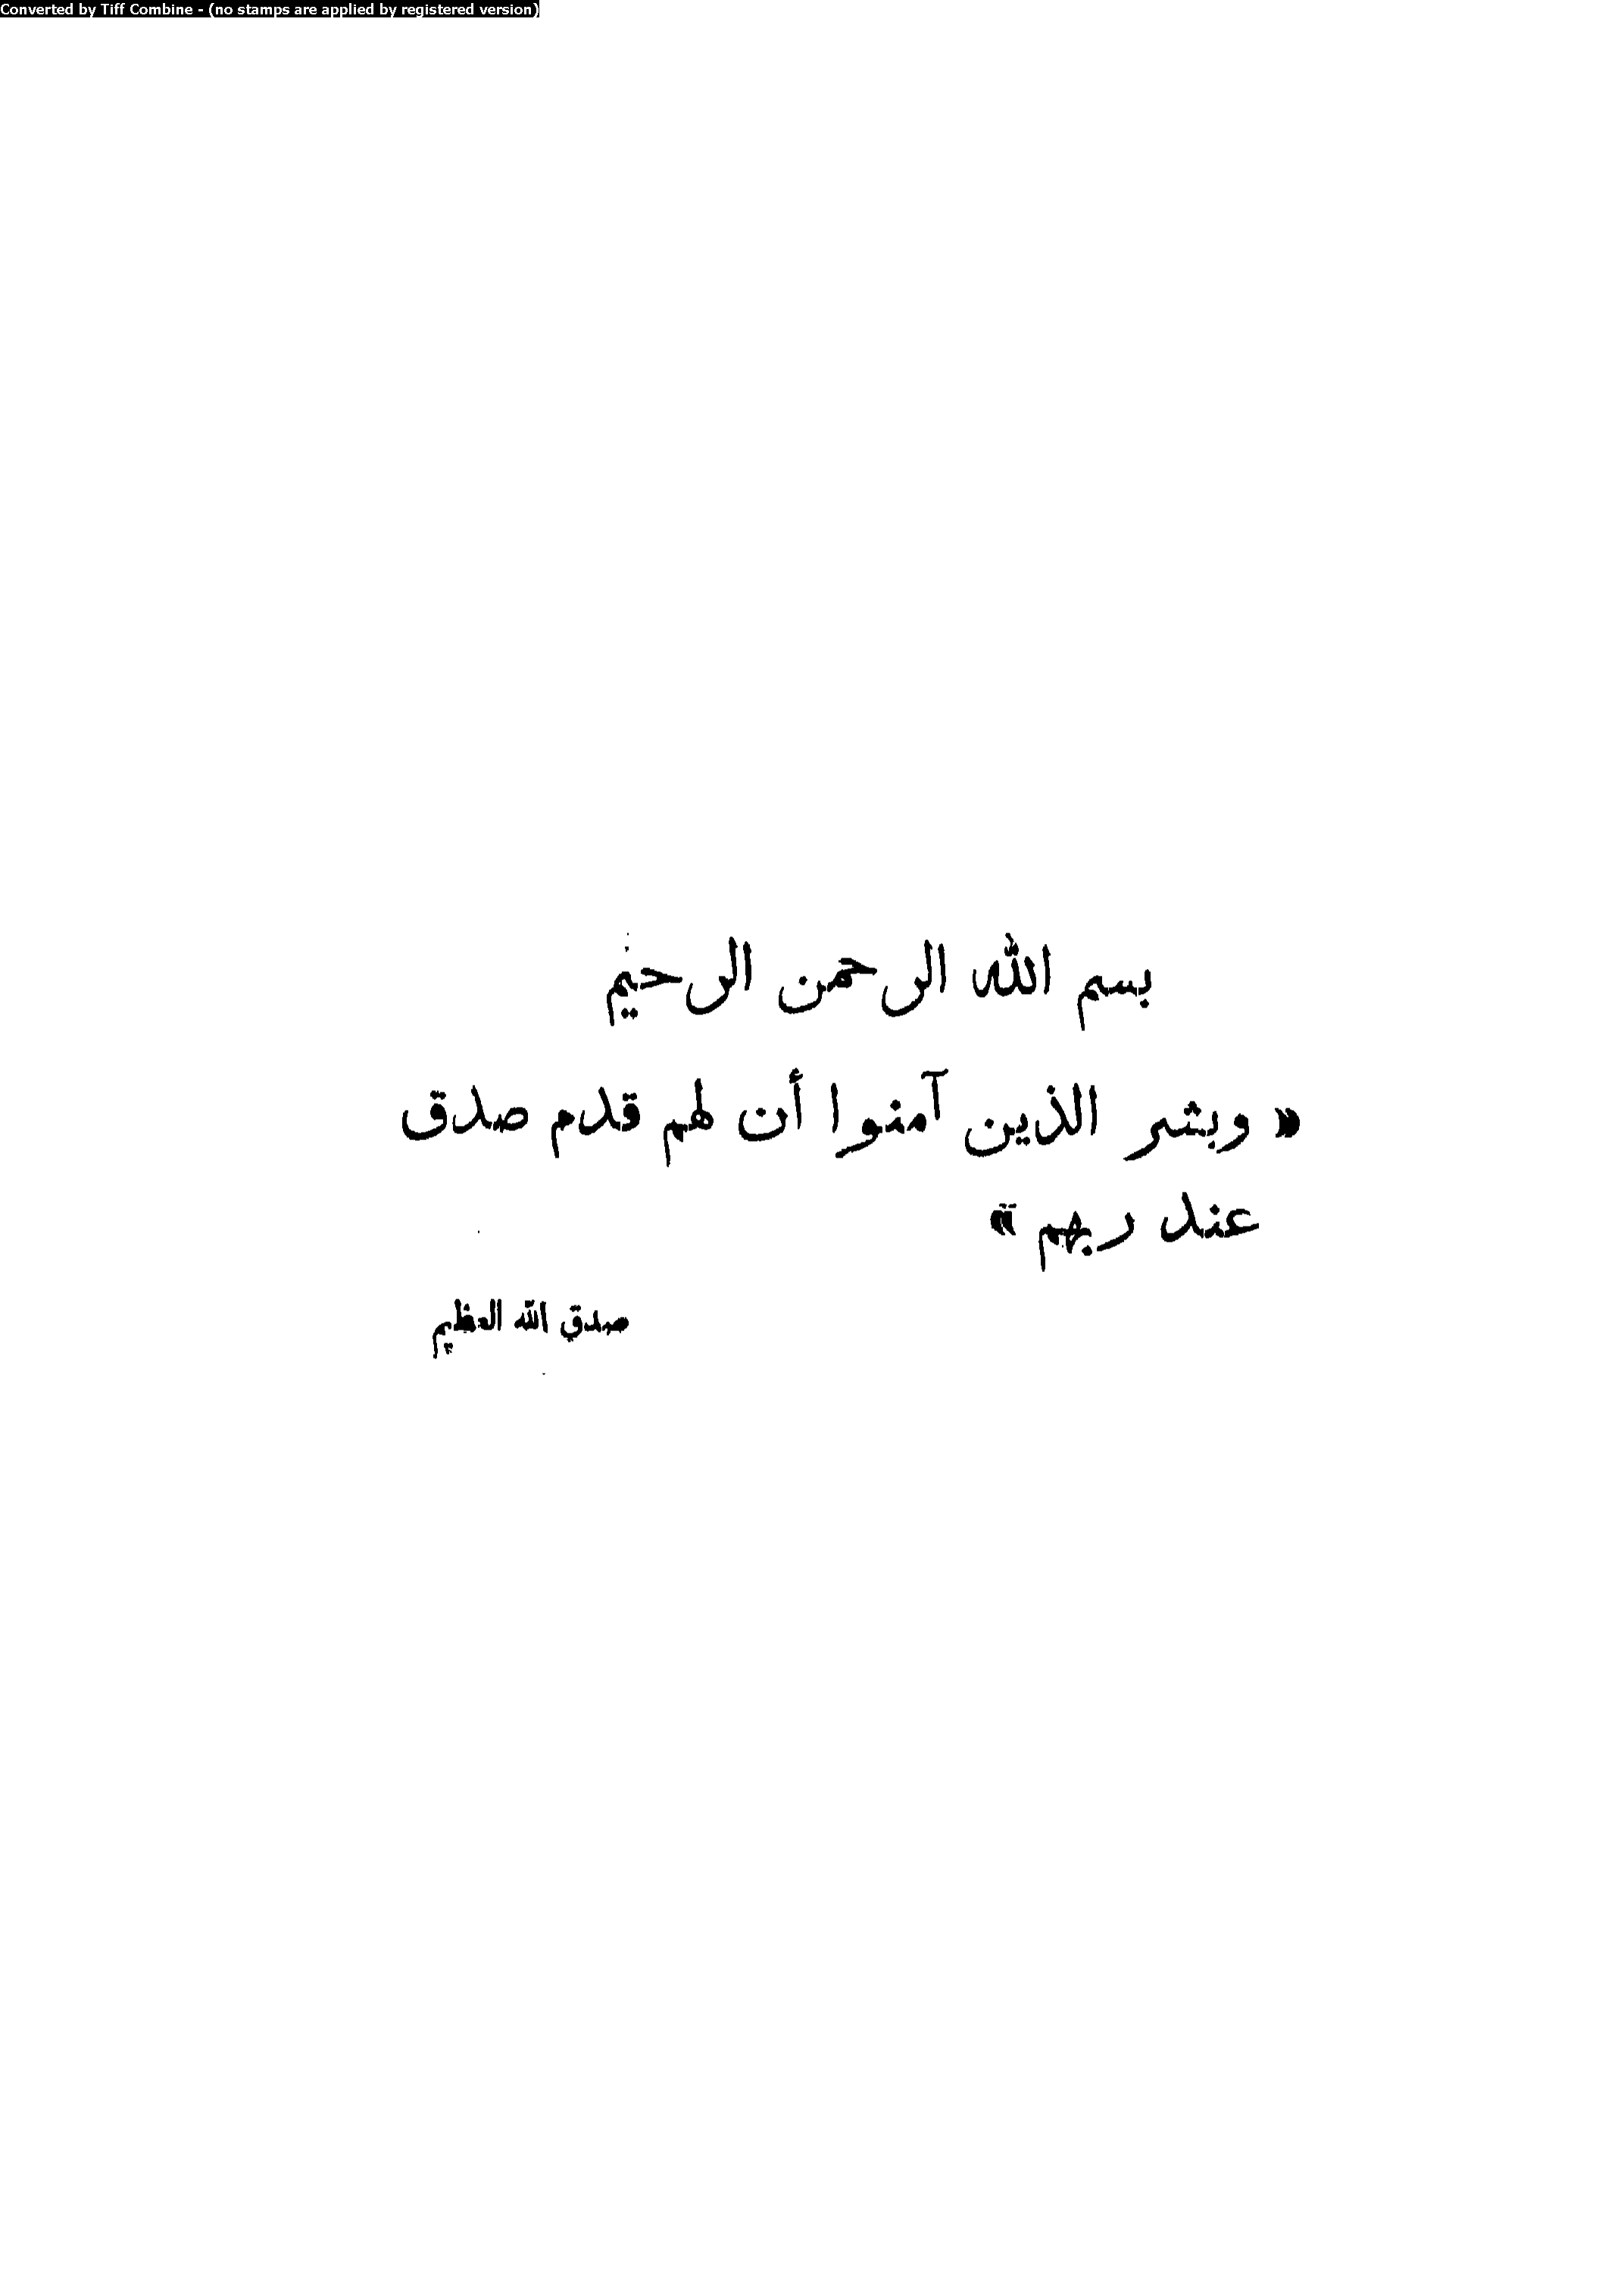 Converted by Tiff Combine - (no stamps are applied by registered version)
بسم الله الرحمن الرحيم
« وبشر الذين آمنوا أن لهم قدم صدق
عند ربهم »
صدق الله العظيم